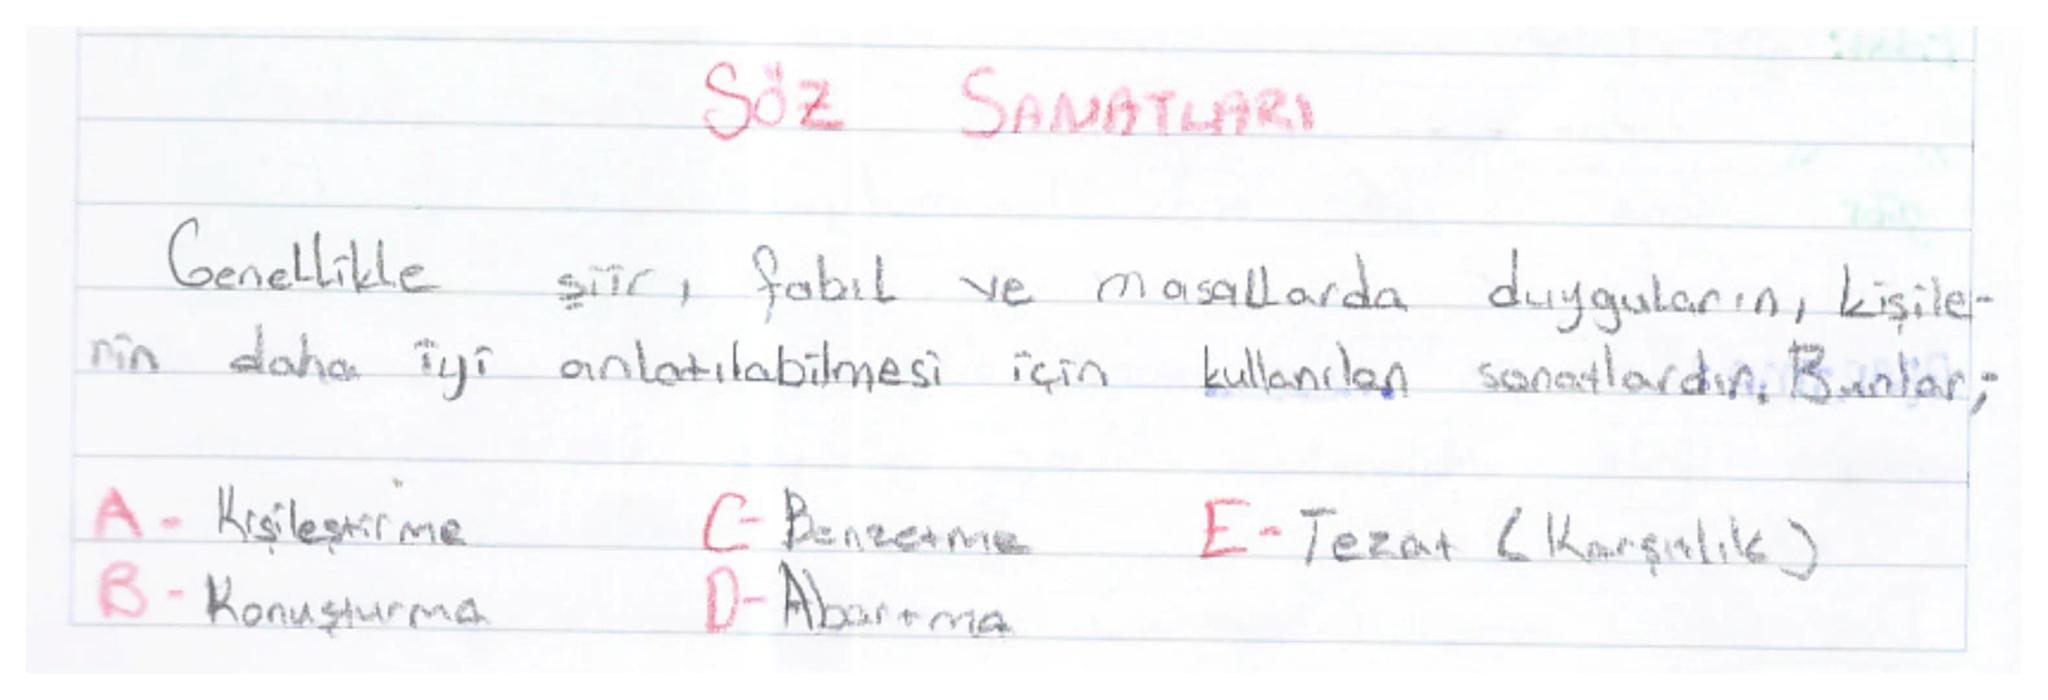 SÖZ SANATLARI
Genellikle şiir, fabıl ve masallarda duyguların, kişile-
rin daha iyi anlatılabilmesi için kullanılan sanatlardır. Bunlar;
A - Kişileştirme C- Benzetme E- Tezat (Karşıtlık)
B - Konuşturma D- Abartma